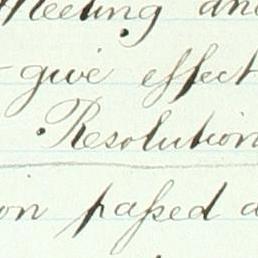 Meeting and
give effect
Resolution
on passed a